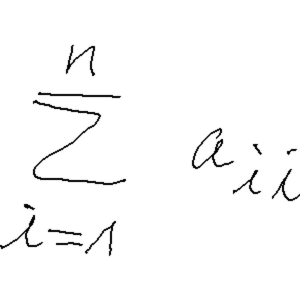 \sum_{i=1}^{n} a_{ii}